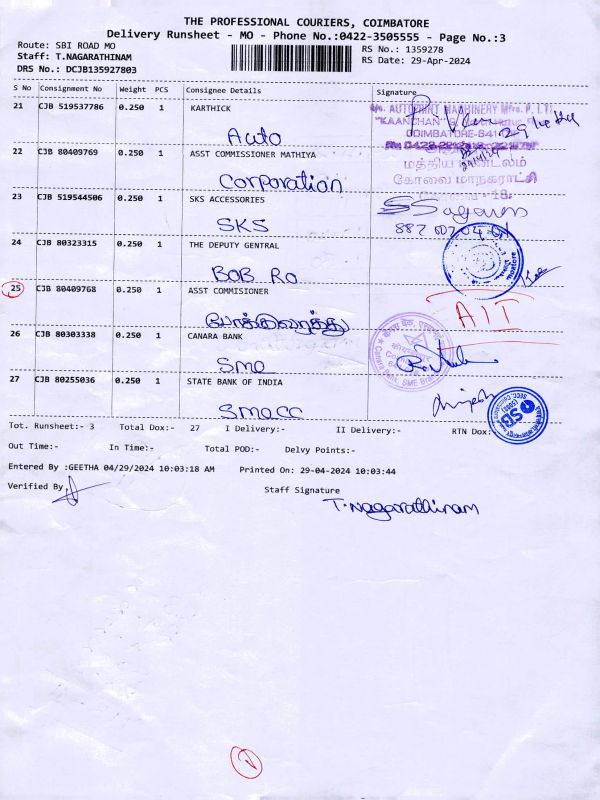 THE PROFESSIONAL COURIERS, COIMBATORE
Delivery Runsheet - MO - Phone No.:0422-3505555 - Page No.:3
Route: SBI ROAD MO
RS No.: 1359278
Staff: T.NAGARATHINAM
RS Date: 29-Apr-2024
DRS No.: DCJB135927803
S No Consignment No Weight PCS Consignee Details Signature
21 CJB 519537786 0.250 1 KARTHICK
COIMBATORE-641
Auto
22 CJB 80409769 0.250 1 ASST COMMISSIONER MATHIYA
மத்திய மண்டலம்
கோவை மாநகராட்சி
Corporation
23 CJB 519544506 0.250 1 SKS ACCESSORIES
SKS
24 CJB 80323315 0.250 1 THE DEPUTY GENTRAL
BOB Ro
25 CJB 80409768 0.250 1 ASST COMMISIONER
AIT
26 CJB 80303338 0.250 1 CANARA BANK
Smo
27 CJB 80255036 0.250 1 STATE BANK OF INDIA
SBI
Smacc
Tot. Runsheet:- 3 Total Dox:- 27 I Delivery:- II Delivery:- RTN Dox:
Out Time:- In Time:- Total POD:- Delvy Points:-
Entered By :GEETHA 04/29/2024 10:03:18 AM Printed On: 29-04-2024 10:03:44
Verified By
Staff Signature
T. Nagarathinam